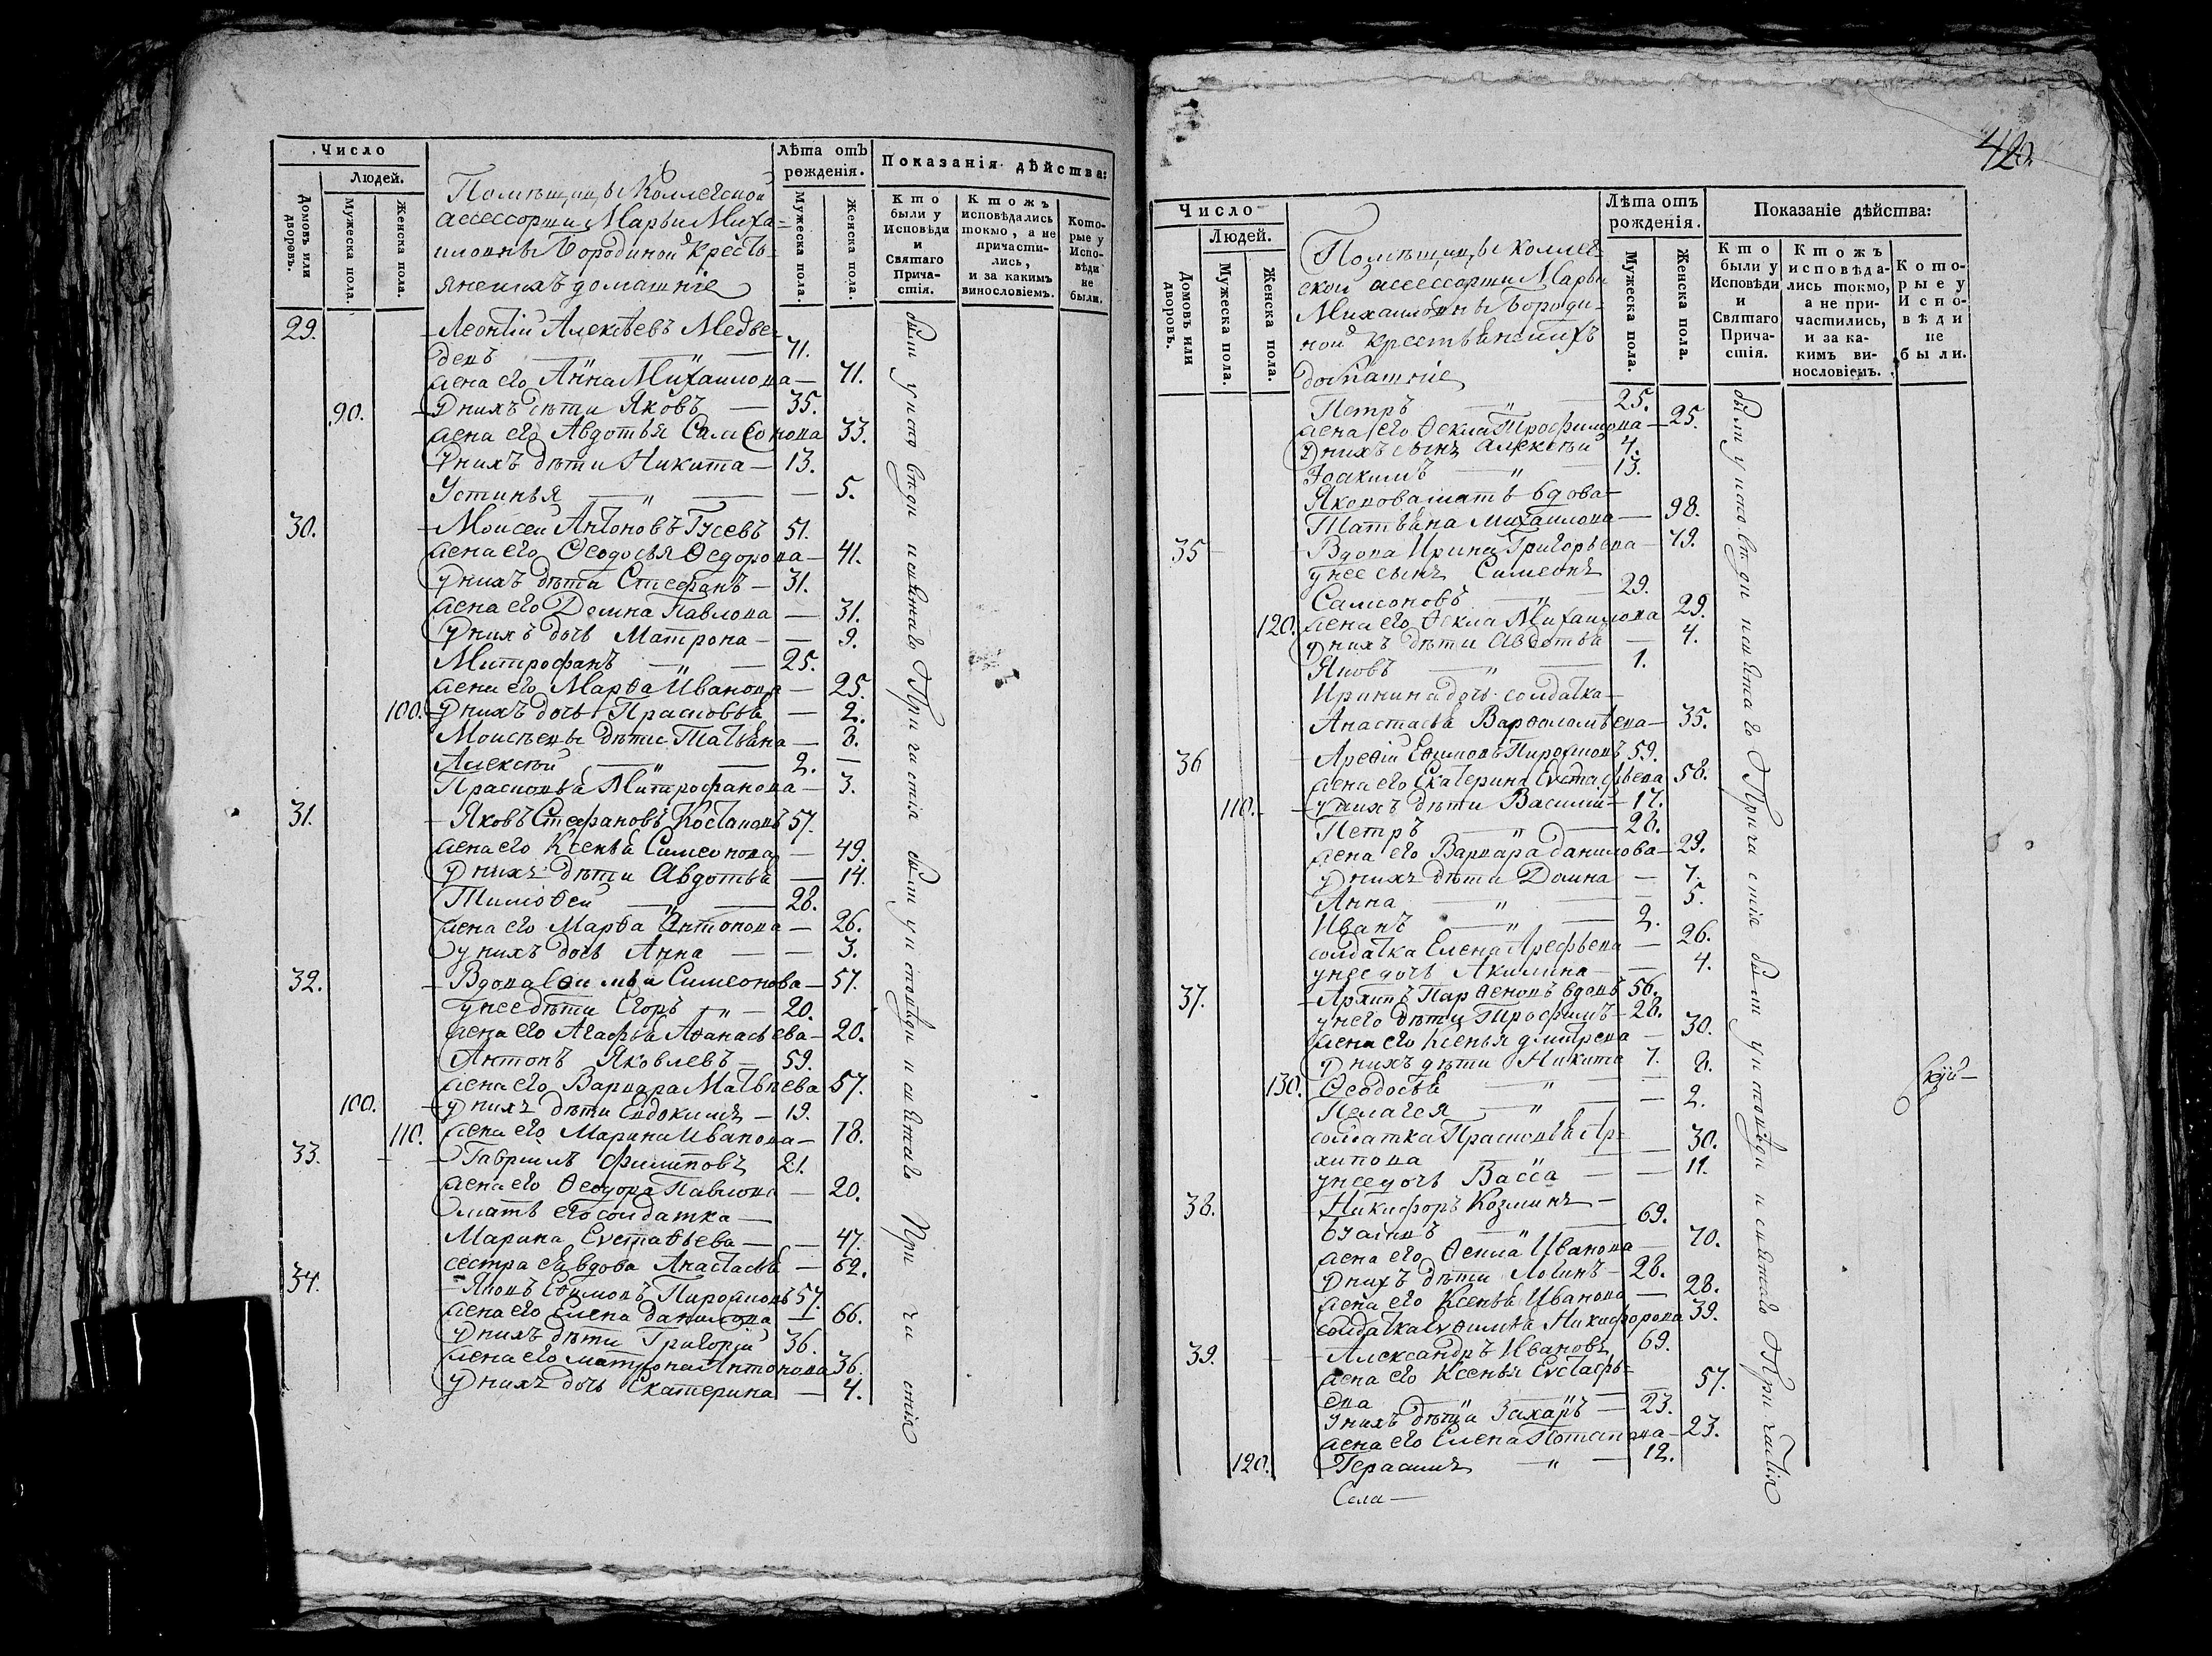 Число
Людей.
Домовъ или дворовъ.
Мужеска пола.
Женска пола.
Помѣщицы Коллегской
ассессорши Марьи Миха-
иловны Бородиной Кресть-
янскихъ домашніе
Лѣта отъ рожденія.
Мужеска пола.
Женска пола.
Показанія дѣйства:
Кто были у Исповѣди и Святаго Прича-стія.
Ктожъ исповѣдались токмо, а не причасти-лись, и за какимъ винословіемъ.
Кото-рые у Испо-вѣди не были.
29. Леонтій Алексѣевъ Медве-
девъ — " — " — 71.
жена его Анна Михаилова — 71.
90. У нихъ дѣти Яковъ — 35.
жена его Авдотья Самсонова 33.
У нихъ дѣти Никита — 13.
Устинья — " — — 5.
30. Моисей Антоновъ Гусевъ 51.
жена его Ѳеодосья Ѳедорова — 41.
У нихъ дѣти Стефанъ — 31.
жена его Домна Павлова — 31.
У нихъ дочь Матрона — — 9.
Митрофанъ — " — 25.
жена его Марѳа Иванова — 25.
100. У нихъ дочь Прасковья — 2.
Моисѣевы дѣти Татьяна — 8.
Алексѣй — " — 2. —
Прасковья Митрофанова — 3.
31. Яковъ Стефановъ 57.
жена его Ксенья Симеонова — 49.
У нихъ дѣти Авдотья — 14.
Тимоѳей — " — 28.
жена его Марѳа Антонова — 26.
У нихъ дочь Анна — — 3.
32. Вдова Симеонова — 57.
у нее дѣти Егоръ — " — 20.
жена его Агафья Аѳанасьева — 20.
Антонъ Яковлевъ — 59.
жена его Варвара Матвѣева 57.
100. У нихъ дѣти Евдокимъ — 19.
110. жена его Марина Иванова — 18.
33. Гавріилъ Филиповъ 21.
жена его Ѳеодора Павлова — 20.
мать его солдатка —
Марина Евстаѳьева — — 47.
сестра ея вдова Анастасья — 62.
34. Яковъ Ефимовъ 57.
жена его Елена Данилова — 66.
У нихъ дѣти Григорій 36.
жена его Матрона Антонова 36.
У нихъ дочь Екатерина — 4.
были у исповѣди и святаго Причастія
были у исповѣди и святаго Причастія
420.
Число
Людей.
Домовъ или дворовъ.
Мужеска пола.
Женска пола.
Помѣщицы коллег-
ской ассессорши Марьи
Михаиловны Бороди-
ной крестьянскихъ
домашніе
Лѣта отъ рожденія.
Мужеска пола.
Женска пола.
Показаніе дѣйства:
Кто были у Исповѣди и Святаго Прича-стія.
Ктожъ исповѣда-лись токмо, а не при-частились, и за ка-кимъ ви-нословіемъ.
Кото-рые у Испо-вѣди не были.
Петръ — " — 25.
жена его Ѳекла Трофимова — 25.
У нихъ сынъ Алексѣй 4.
Іоакимъ — " — 13.
Яковова мать вдова —
Татьяна Михаилова — 98.
35 Вдова Ирина Григорьева — 79.
у нее сынъ Симеонъ
Самсоновъ — " — 29.
120. жена его Ѳекла Михаилова 29.
У нихъ дѣти Авдотья — 4.
Яковъ — " — 1.
Иринина дочь солдатка —
Анастасья Варѳоломѣева — 35.
36 Ареѳій Ефимовъ 59.
жена его Екатерина Евстафьева 58.
110. у нихъ дѣти Василій — 17.
Петръ — " — 28.
жена его Варвара Данилова — 29.
У нихъ дѣти Домна — 7.
Анна — " — 5.
Иванъ — " — 2.
солдатка Елена Арефьева — 26.
у нее дочь Акилина — — 4.
37. Архипъ Парѳеновъ вдовъ 56.
у него дѣти Трофимъ — 28.
жена его Ксенья Дмитрева — 30.
У нихъ дѣти Никита 7. 8.
130. Ѳеодосья — " —
Пелагея — " — — 2.
солдатка Прасковья Ар-
хипова — 30.
у нее дочь Васса — — 11.
38. Никифоръ Козминъ —
— " — 69.
жена его Ѳекла Иванова — 70.
У нихъ дѣти Логинъ — 28.
жена его Ксенья Иванова — 28.
солдатка Никифорова 39.
39. Александръ Ивановъ 69.
жена его Ксенья Евстафь-
ева — " — 57.
У нихъ дѣти Захаръ — 23.
жена его Елена Потапова — 23.
120. Герасимъ — " — 12.
Села —
были у исповѣди и святаго Причастія
были у исповѣди и святаго Причастія